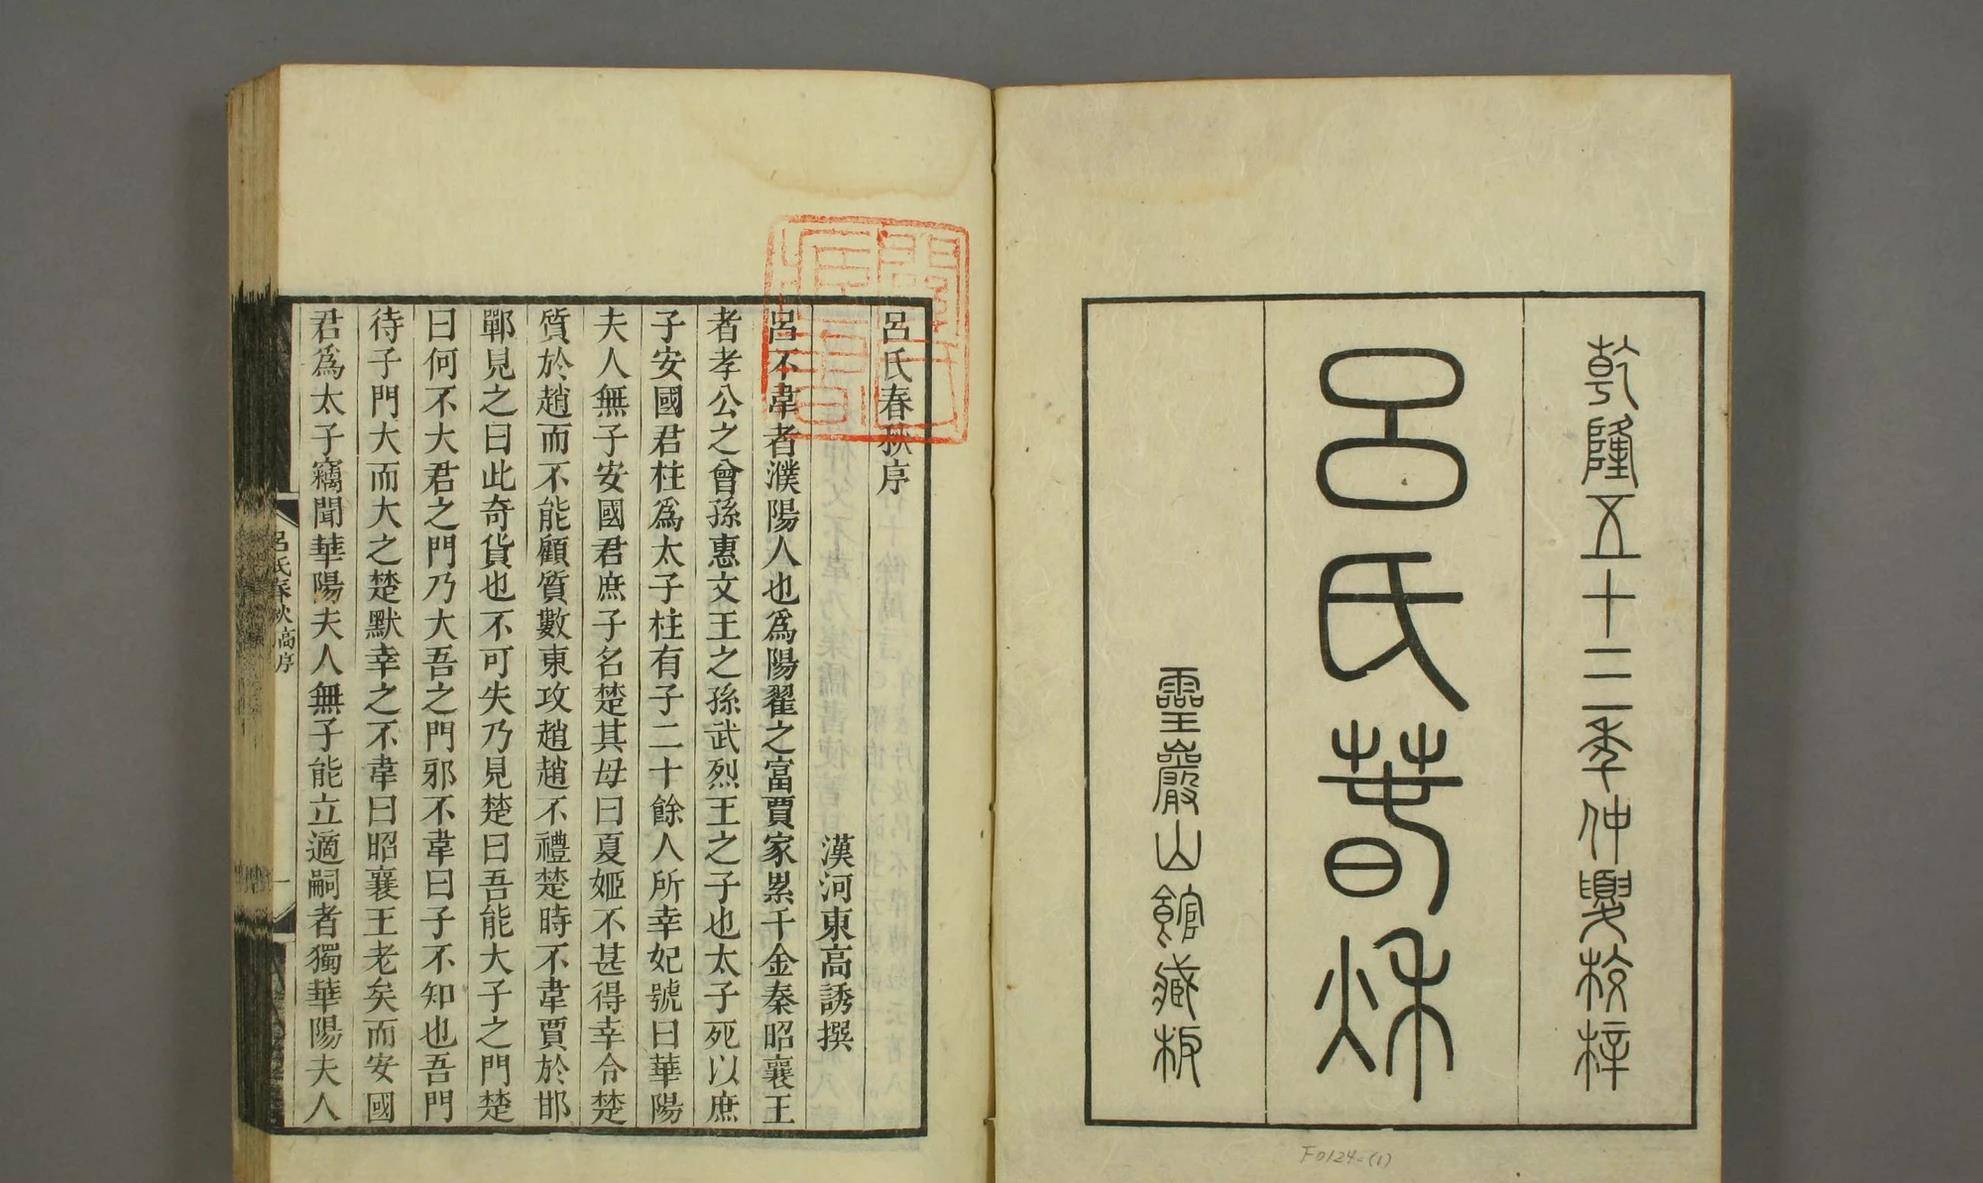 乾隆五十三年仲夏校梓
呂氏春秋
靈巖山館藏板
F0124-(1)
呂氏春秋序
漢河東高誘撰
呂不韋者濮陽人也爲陽翟之富賈家累千金秦昭襄王
者孝公之曾孫惠文王之孫武烈王之子也太子死以庶
子安國君柱爲太子柱有子二十餘人所幸妃號曰華陽
夫人無子安國君庶子名楚其母曰夏姬不甚得幸令楚
質於趙而不能顧質數東攻趙趙不禮楚時不韋賈於邯
鄲見之曰此奇貨也不可失乃見楚曰吾能大子之門楚
曰何不大君之門乃大吾之門邪不韋曰子不知也吾門
待子門大而大之楚默幸之不韋曰昭襄王老矣而安國
君爲太子竊聞華陽夫人無子能立適嗣者獨華陽夫人
呂氏春秋高序
一